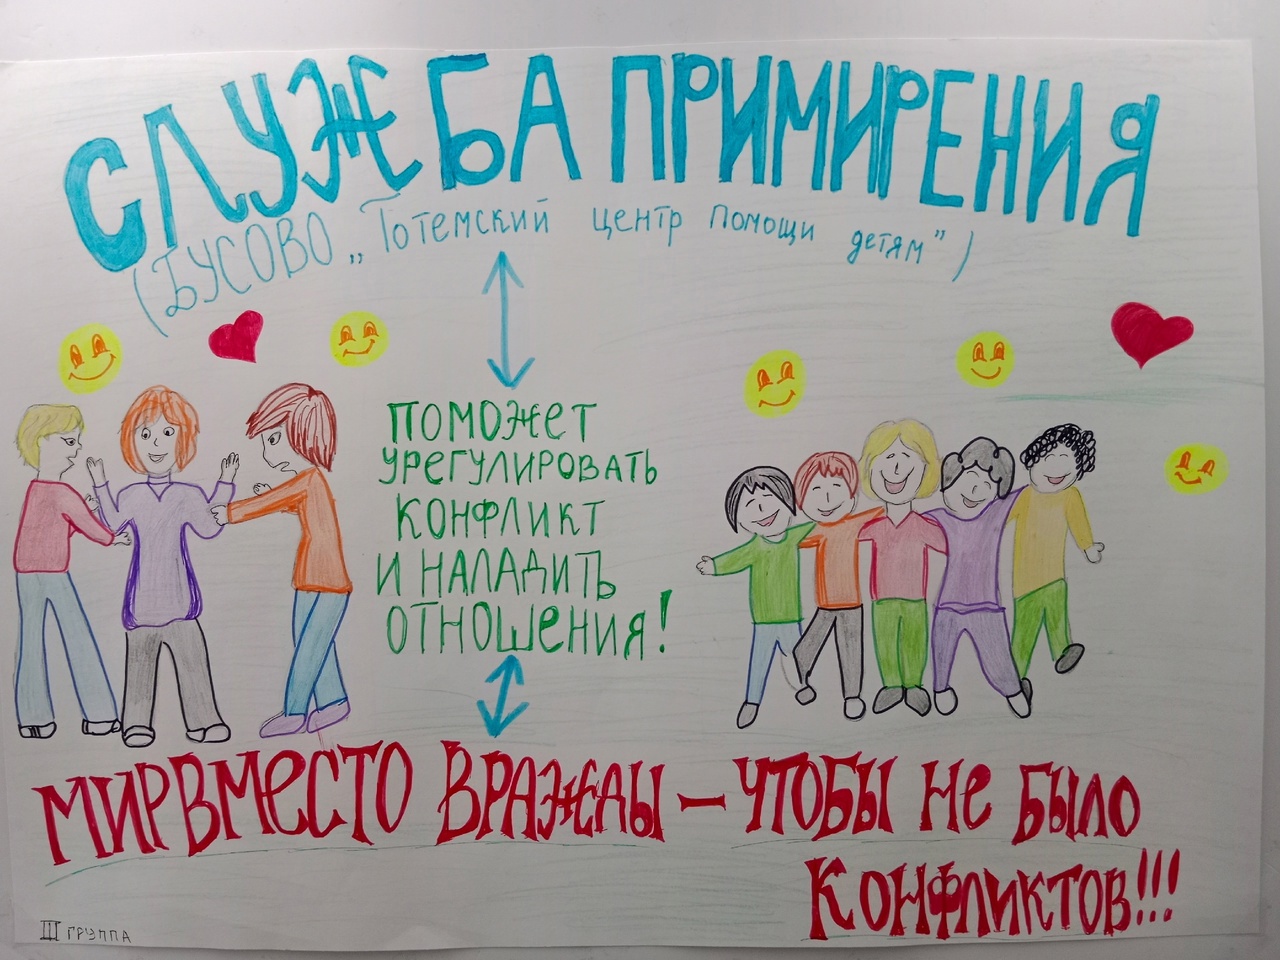 СЛУЖБА ПРИМИРЕНИЯ
(БУСОВО „Тотемский центр помощи детям")
ПОМОЖЕТ
УРЕГУЛИРОВАТЬ
КОНФЛИКТ
И НАЛАДИТЬ
ОТНОШЕНИЯ!
МИР ВМЕСТО ВРАЖДЫ – ЧТОБЫ НЕ БЫЛО
КОНФЛИКТОВ!!!
III ГРУППА